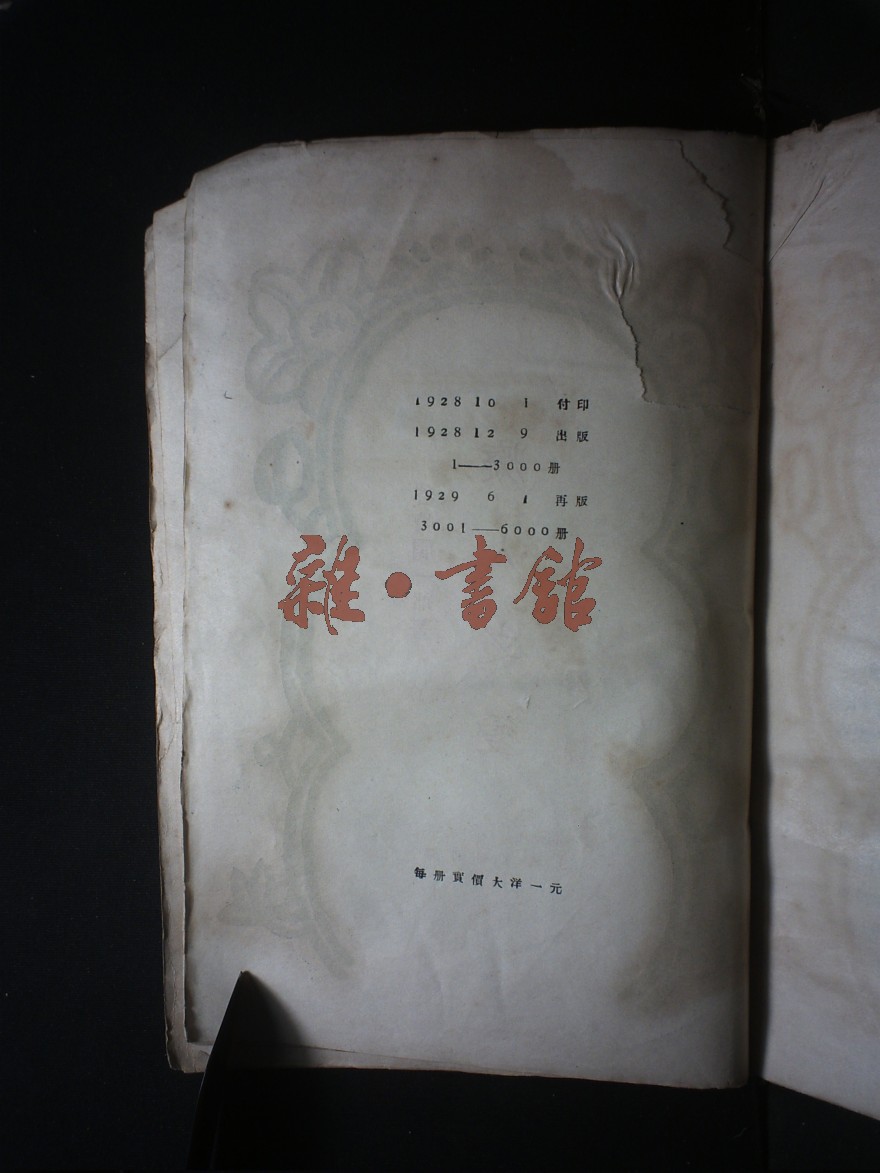 1928 10 1 付印
1928 12 9 出版
1——3000册
1929 6 1 再版
3001——6000册
雜·書館
每册實價大洋一元